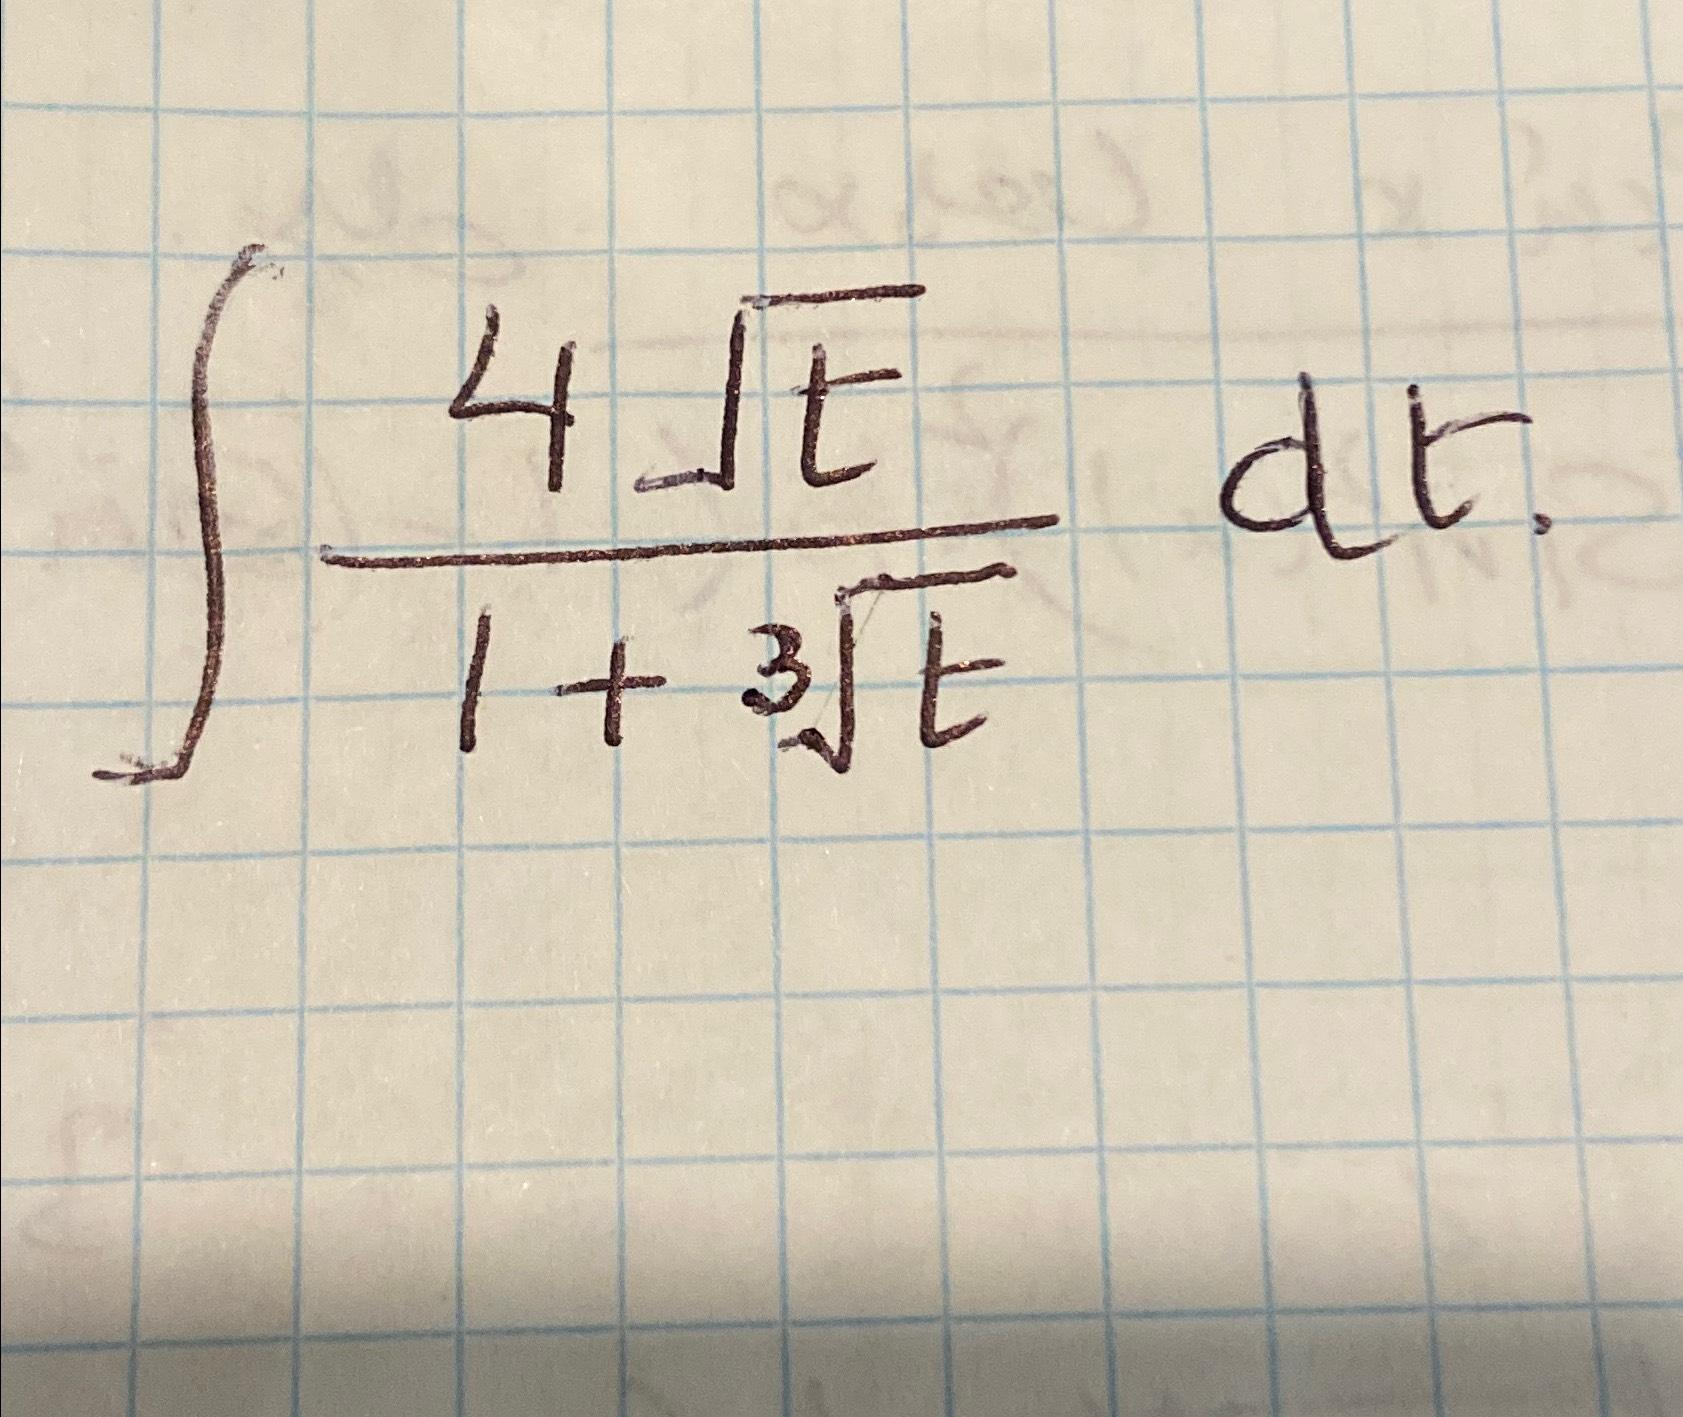 ∫ 4√t / (1 + ³√t) dt.